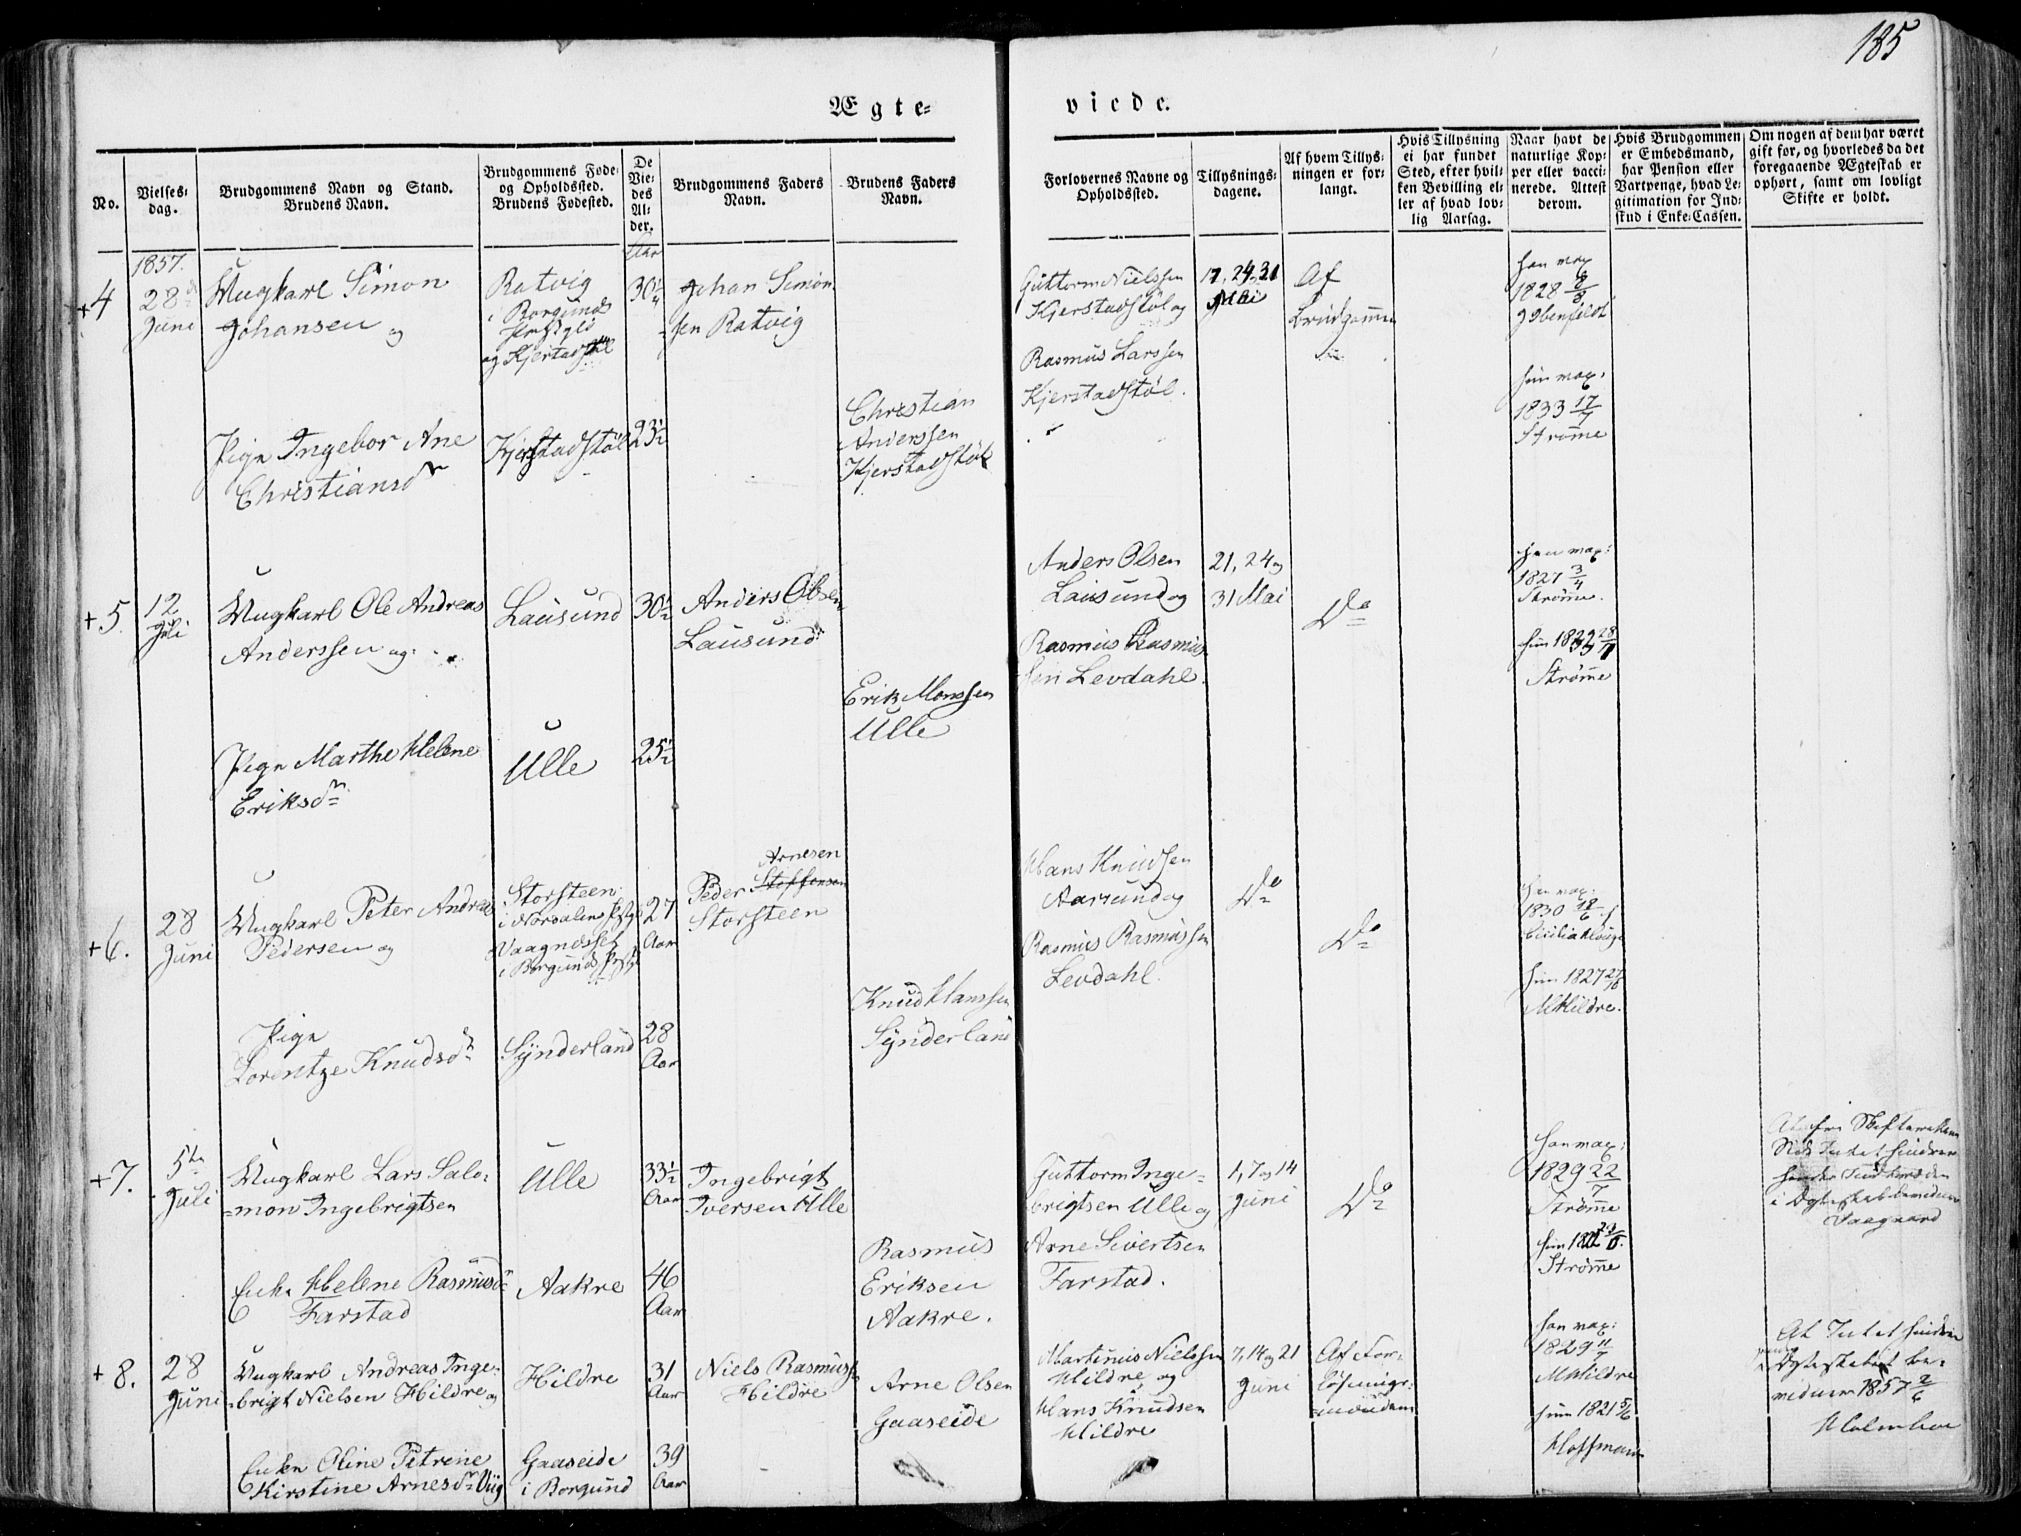 185
Ægte=
viede.
No.
Vielses=
dag.
Brudgommens Navn og Stand.
Brudens Navn.
Brudgommens Føde=
og Opholdssted.
Brudens Fødested.
De
Vie=
des
Al=
der.
Brudgommens Faders
Navn.
Brudens Faders
Navn.
Forlovernes Navne og
Opholdssted.
Tillysnings=
dagene.
Af hvem Tillys=
ningen er for=
langt.
Hvis Tillysning
ei har fundet
Sted, efter hvil=
ken Bevilling el=
ler af hvad lov=
lig Aarsag.
Naar havt de
naturlige Kop=
per eller vacci=
nerede. Attest
derom.
Hvis Brudgommen
er Embedsmand,
har Pension eller
Vartpenge, hvad Le=
gitimation for Ind=
skud i Enke=Cassen.
Om nogen af dem har været
gift før, og hvorledes da det
foregaaende Ægteskab er
ophørt, samt om lovligt
Skifte er holdt.
1857.
Aar
+4
28de
Juni
Ungkarl Simon
Johansen og
Ratvig
i Borgunds
Præstgld
og Kjerstadstøl
30¼
Johan Simon
sen Ratvig
Guttorm Nielssen
Kjerstadstøl og
Rasmus Larssen
Kjerstadstøl.
17, 24, 31
Mai
Af
Brudgommen
han vax
1828 8/8
Ibenfeldt
hun vax.
1833 17/7
Strømme
Pige Ingebor Ane
Christiansdr
Kjerstadstøl
23½
Christian
Anderssen
Kjerstadstøl
+5
12
Juli
Ungkarl Ole Andreas
Anderssen og
Lausund
30½
Anders Olsen
Lausund
Anders Olsen
Lausund og
Rasmus Rasmus
sen Levdahl.
21, 24 og
31 Mai
Do
han vax:
1827 3/4
Strømme.
hun
Strømme
Pige Marthe Helene
Eriksdr
Ulle
25½
Erik Monssen
Ulle
+6.
28
Juni
Ungkarl Peter Andreas
Pedersen og
Storsteen
i Nordalens Pstgld
Vaagnesset
i Borgunds Pstgld
27
Aar
Peder Stoffensen Arnesen
Storsteen
Hans Knudsen
Aarsund og
Rasmus Rasmussen
Levdahl.
Do
Do
han vax:
1830 18/6
Cicilia Kloüge
hun 1827 27/6
M Hildre.
Pige
Lorentze Knudsdr
Synderland
28
Aar
Knud Hanssen
Synderland
+7.
5te
Juli
Ungkarl Lars Salo=
=mon Ingebrigtsen
Ulle
33½
Aar
Ingebrigt
Iversen Ulle
Guttorm Inge=
brigtsen Ulle og
Arne Sivertsen
Farstad.
1, 7 og 14
Juni
Do
han vax:
1829 22/7
Strømme
hun
Strømme
Enke Helene Rasmusdr
Farstad
Aakre
46
Aar
Rasmus
Eriksen
Aakre.
+8.
28
Juni
Ungkarl Andreas Inge=
=brigt Nielsen Hildre og
Hildre
31
Aar
Niels Rasmussen
Hildre
Martinus Nielssen
Hildre og
Hans Knudsen
Hildre
7, 14 og 21
Juni
Af For=
han vax:
1829 11/7
M Hildre
hun 1821 5/6
Hoffmann
At Intet hindrer
Ægteskabet be=
vidner 1857 2/6
Enken Oline Petrine
Kirstine Arnesdr Viig
Gaaseide
i Borgund
39
Aar
Arne Olsen
Gaaseide